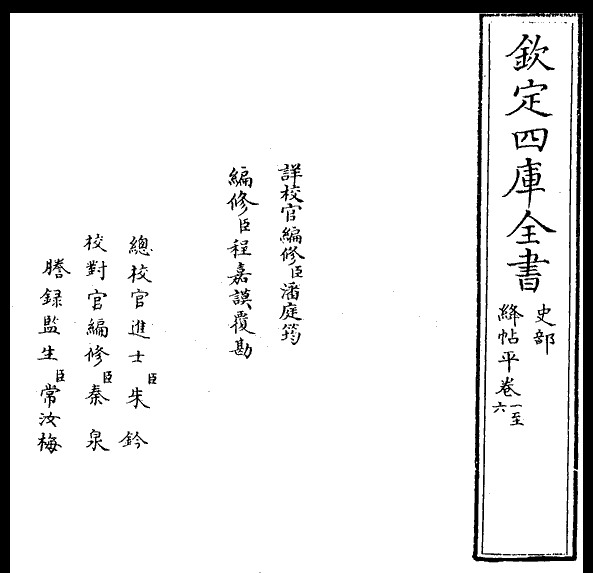 欽定四庫全書
史部
絳帖平卷一至六
詳校官編修臣潘庭筠
編修臣程嘉謨覆勘
總校官進士臣朱鈐
校對官編修臣秦泉
謄錄監生臣常汝梅